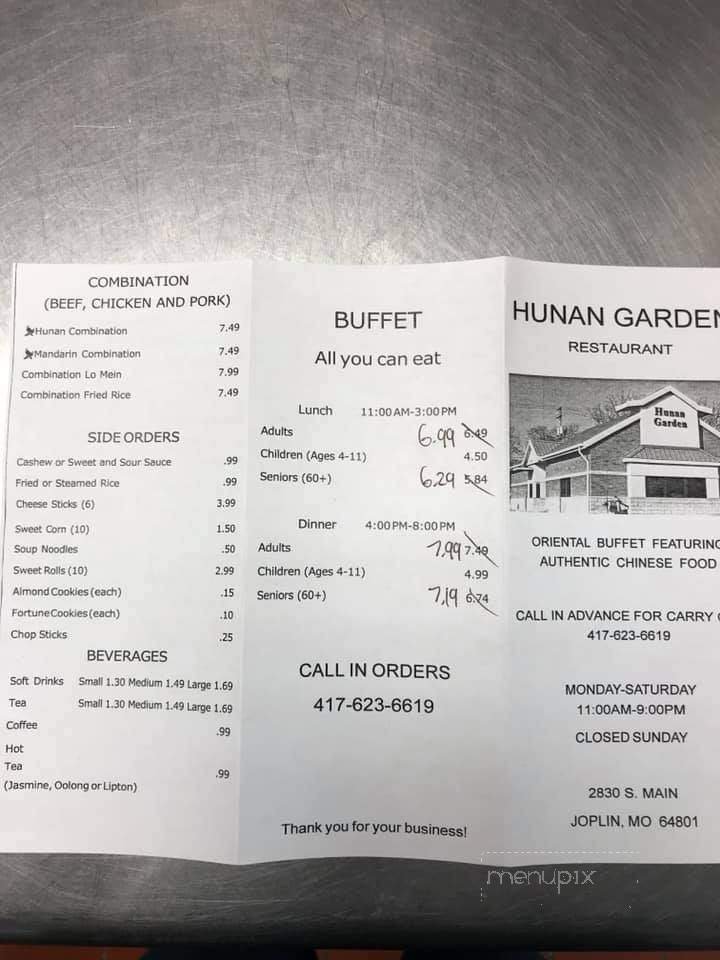 COMBINATION
(BEEF, CHICKEN AND PORK)
Hunan Combination 7.49
Mandarin Combination 7.49
Combination Lo Mein 7.99
Combination Fried Rice 7.49
SIDE ORDERS
Cashew or Sweet and Sour Sauce .99
Fried or Steamed Rice .99
Cheese Sticks (6) 3.99
Sweet Corn (10) 1.50
Soup Noodles .50
Sweet Rolls (10) 2.99
Almond Cookies (each) .15
Fortune Cookies (each) .10
Chop Sticks .25
BEVERAGES
Soft Drinks Small 1.30 Medium 1.49 Large 1.69
Tea Small 1.30 Medium 1.49 Large 1.69
Coffee .99
Hot
Tea .99
(Jasmine, Oolong or Lipton)
BUFFET
All you can eat
Lunch 11:00 AM-3:00 PM
Adults 6.99 6.49
Children (Ages 4-11) 4.50
Seniors (60+) 6.29 5.84
Dinner 4:00 PM-8:00 PM
Adults 7.99 7.49
Children (Ages 4-11) 4.99
Seniors (60+) 7.19 6.74
CALL IN ORDERS
417-623-6619
Thank you for your business!
HUNAN GARDEN
RESTAURANT
Hunan
Garden
ORIENTAL BUFFET FEATURING
AUTHENTIC CHINESE FOOD
CALL IN ADVANCE FOR CARRY
417-623-6619
MONDAY-SATURDAY
11:00AM-9:00PM
CLOSED SUNDAY
2830 S. MAIN
JOPLIN, MO 64801
menupix